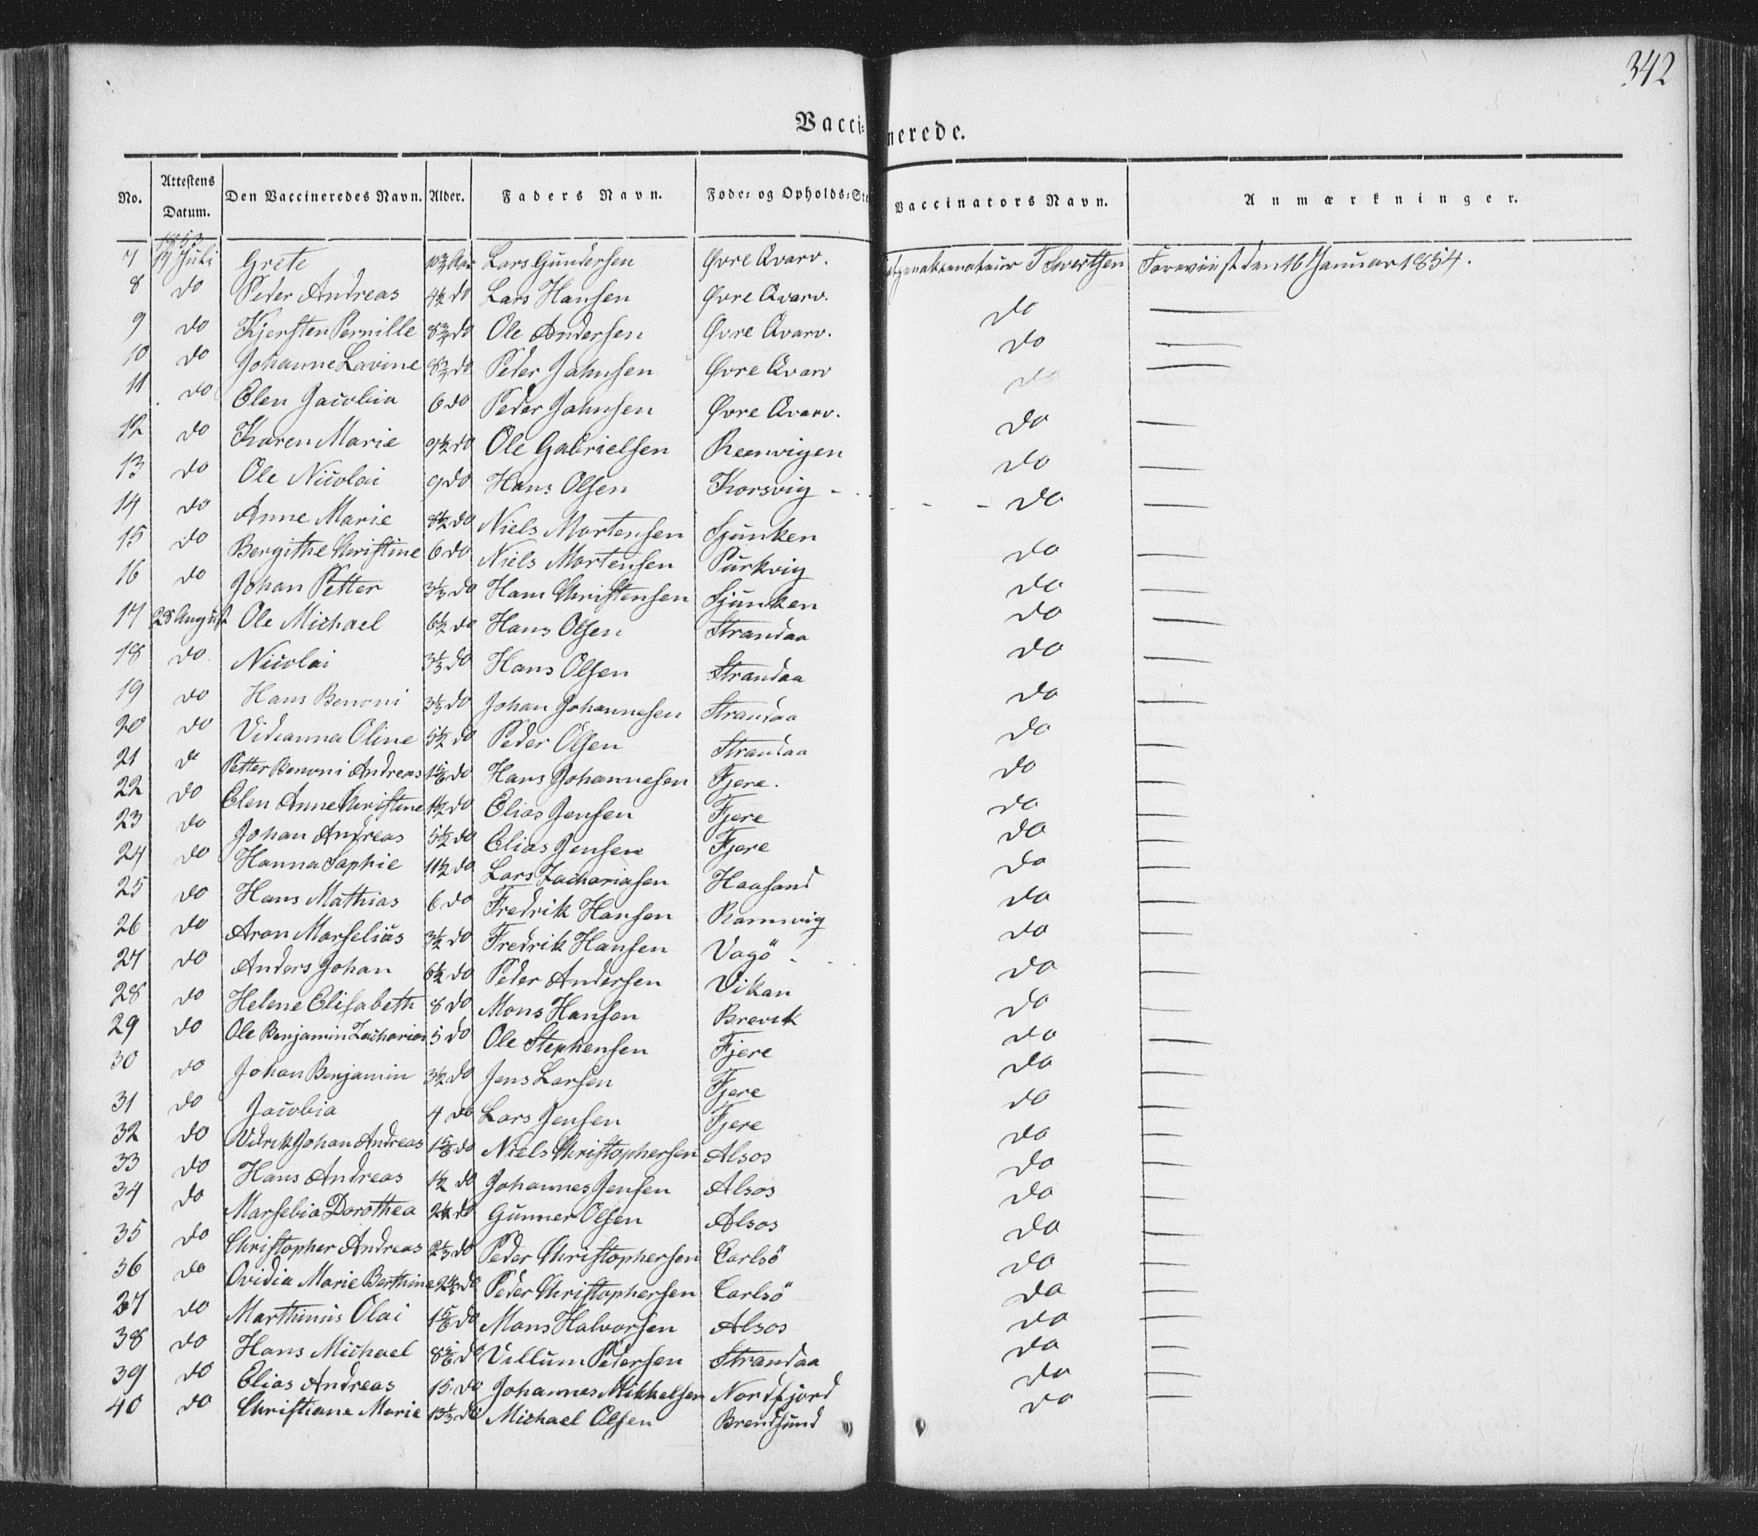 342
Vaccinerede.
No. Attestens Datum. Den Vaccineredes Navn. Alder. Faders Navn. Føde- og Opholds-St Vaccinators Navn. Anmærkninger.
1853
7 Juli Grete Aar Lars Gundersen Øvre Qvarv. Foreviist den 16 Januar 1854.
8 do Peder Andreas 4½ do Lars Hansen Øvre Qvarv. do —
9 do Kjersten Pernille 8¾ do Ole Andersen Øvre Qvarv. do —
10 do Johanne Lavine 8¾ do Peder Jahnsen Øvre Qvarv do —
11 do Elen Jacobia 6 do Peder Jahnsen Øvre Qvarv. do —
12 do Karen Marie 9½ do Ole Gabrielsen Reenvigen do —
13 do Ole Nicolai 9 do Hans Olsen Korsvig - - - do —
14 do Anne Marie 8½ do Niels Mortensen Sjunken do —
15 do Bergithe Christine 6 do Niels Mortensen Purkvig do —
16 do Johan Petter 3⅓ do Hans Christensen Sjunken do —
17 28 August Ole Michael 6½ do Hans Olsen Strandaa do —
18 do Nicolai 3⅓ do Hans Olsen Strandaa do —
19 do Hans Benoni 3⅓ do Johan Johannesen Strandaa do —
20 do Vidianna Oline 5½ do Peder Olsen Strandaa do —
21 d Petter Benoni Andreas 1⅚ do Hans Johannesen Fjere. do —
22 do Elen Anne Christine 1½ do Elias Jensen Fjere do —
23 do Johan Andreas 5½ do Elias Jensen Fjere do —
24 do Hanna Saphie 11½ do Lars Zachariasen Haasand do —
25 do Hans Mathias 6 do Fredrik Hansen Ramnvig do —
26 do Aron Marselius 3½ do Fredrik Hansen Vagö - do —
27 do Anders Johan 6½ do Peder Andersen Vikan do —
28 do Helene Elisabeth 8 do Mons Hansen Brevik do —
29 do Ole Benjamin Zacharias 5 do Ole Stephensen Fjere do —
30 do Johan Benjamin 3½ do Jens Larsen Fjere do —
31 do Jacobia 4 do Lars Jensen Fjere do —
32 do Didrik Johan Andreas 1⅚ do Niels Christophersen Alsos do —
33 do Hans Andreas 1½ do Johannes Jensen Alsos do —
34 do Marselia Dorothea do Gunner Olsen Alsos do —
35 do Christopher Andreas 2⅓ do Peder Christophersen Carlsö do —
36 do Ovidia Marie Berthine do Peder Christophersen Carlsö do —
37 do Marthinus Olai 1⅚ do Mons Halvorsen Alsos do —
38 do Hans Michael do Villum Pedersen Strandaa do —
39 do Elias Andreas 15 do Johannes Mikkelsen Nordfjord do —
40 do Christiana Marie 13⅓ do Michael Olsen Brendsund do